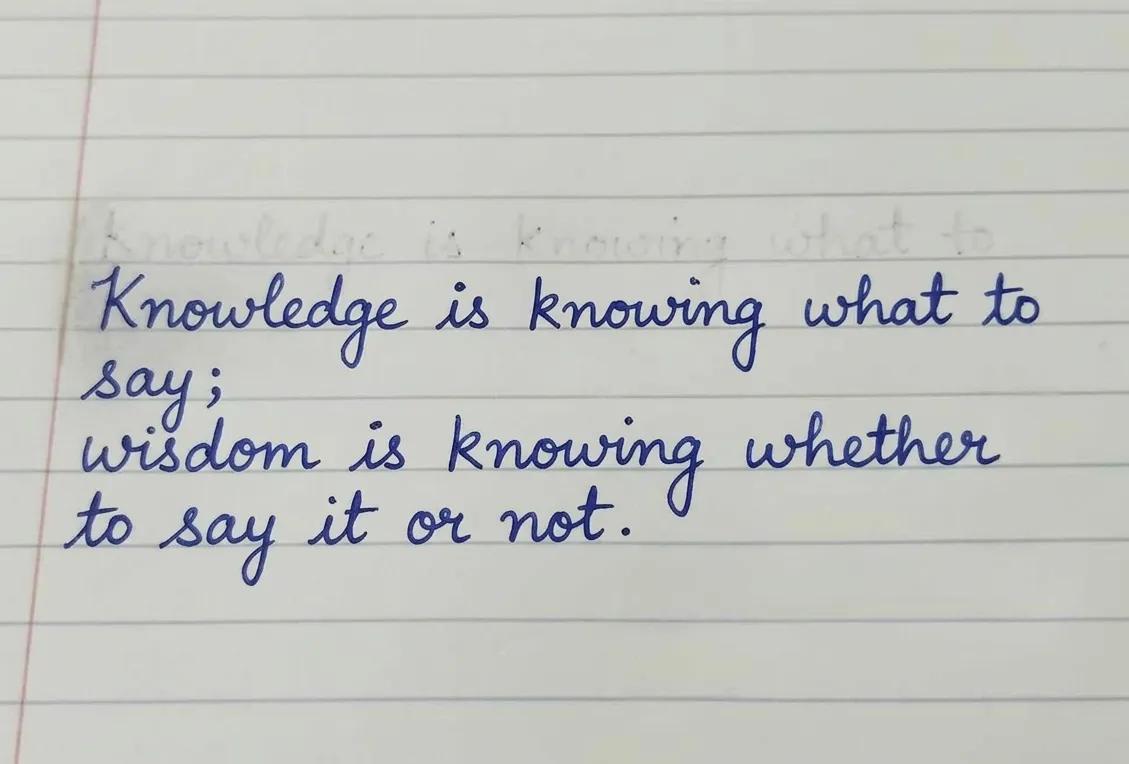 Knowledge is knowing what to
Knowledge is knowing what to
say;
wisdom is knowing whether
to say it or not.